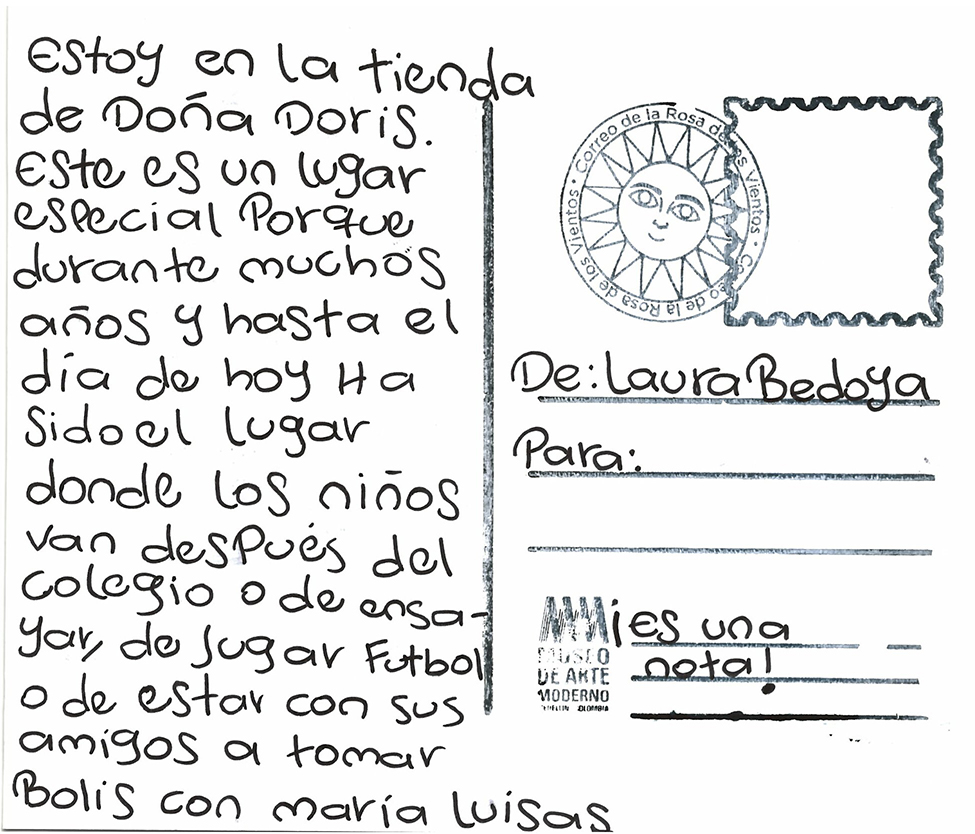 Estoy en la tienda
de Doña Doris.
Este es un lugar
especial Porque
durante muchos
años y hasta el
día de hoy Ha
Sido el lugar
donde los niños
van desPués del
colegio o de ensa-
yar, de Jugar Futbol
o de estar con sus
amigos a tomar
Bolis con maría luisas
Correo de la Rosa de los Vientos • Correo de la Rosa de los Vientos •
De: Laura Bedoya
Para:
¡es una
nota!
MUSEO
DE ARTE
MODERNO